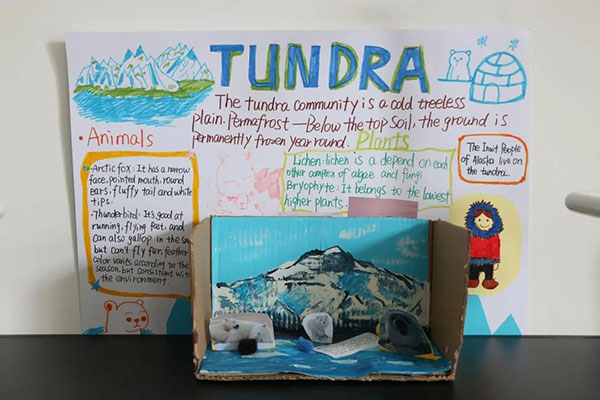 TUNDRA
The tundra community is a cold treeless
plain. Permafrost—Below the top soil, the ground is
permanently frozen year round.
• Animals
Arctic fox: It has a narrow
face, pointed mouth, round
ears, fluffy tail and white
tips.
Thunderbird: It's good at
running, flying fast, and
can also gallop in the
but can't fly far, feather
color according to the
season, but consistent
the environment.
Plants
Lichen: lichen is a depend on each
other complex of algae and fungi
Bryophyte: It belongs to the lowest
higher plants.
The Inuit People
of Alaska live on
the tundra.